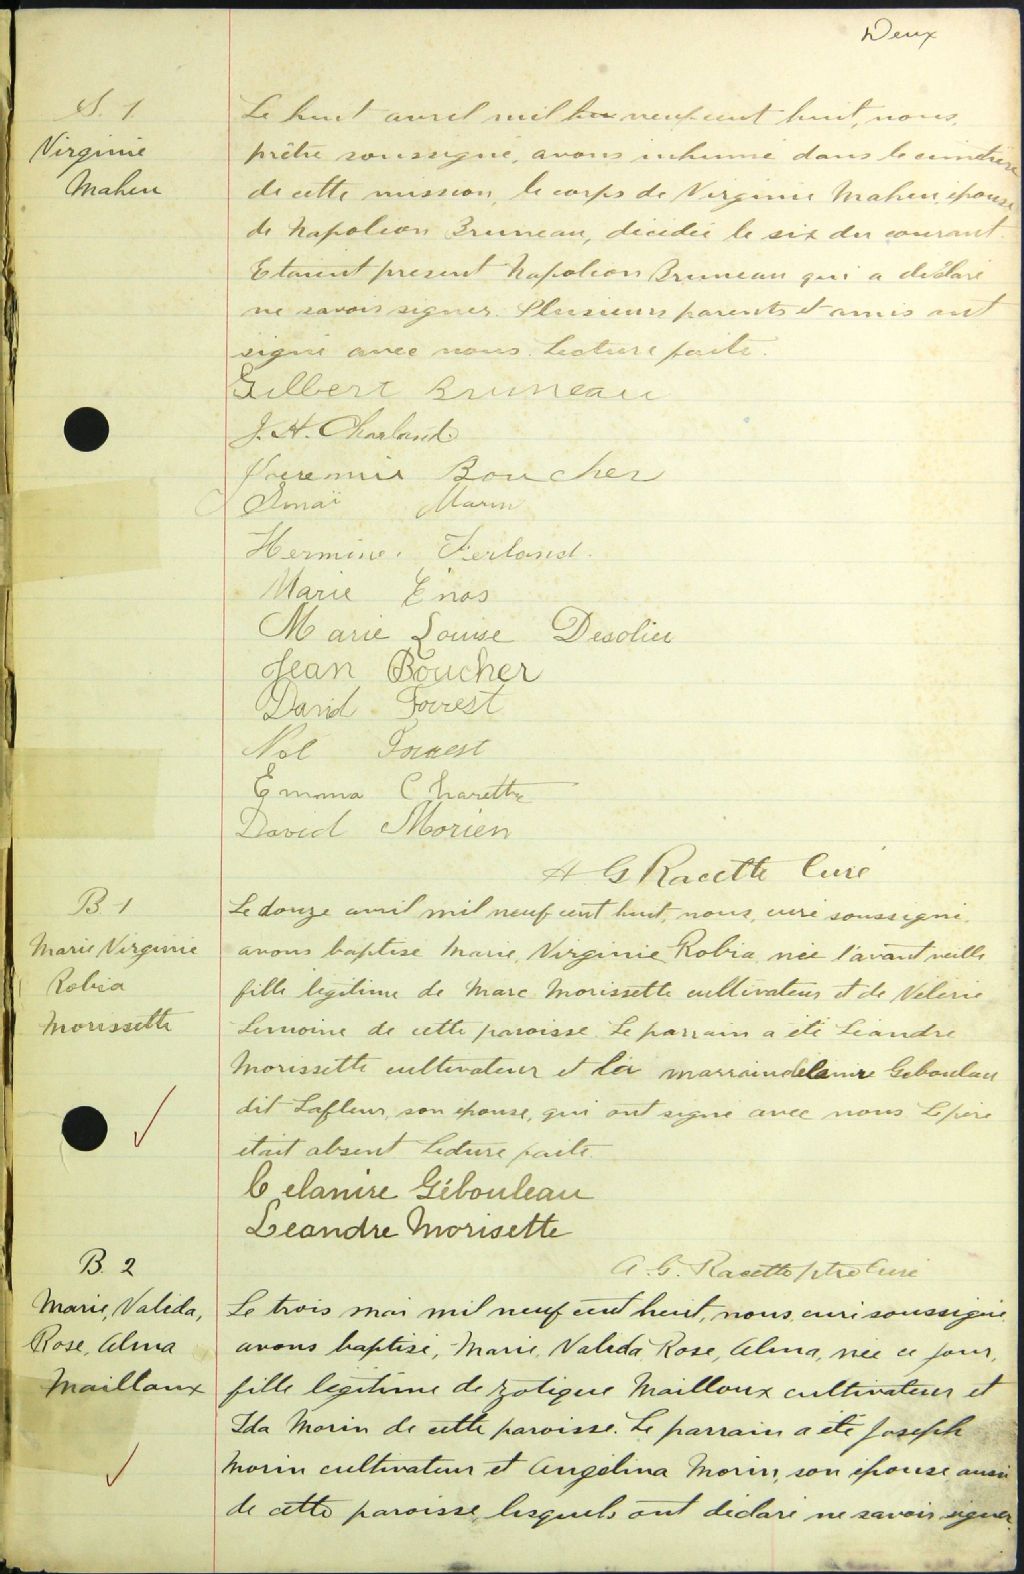 Deux
S. 1
Virginie
Maheu
Le huit avril mil neuf cent huit, nous,
prêtre soussigné, avons inhumé dans le cimetière
de cette mission, le corps de Virginie Maheu, épouse
de Napoléon Bruneau, décédée le six du courant.
Etaient present Napoléon Bruneau qui a déclaré
ne savoir signer. Plusieurs parents et amis ont
signé avec nous. Lecture faite.
Gilbert Bruneau
J. H. Charland
Boucher
Marin
Hermine Ferland.
Marie Enos
Marie Louise Desolier
Jean Boucher
David Forrest
Nol Forrest
Emma Charette
David Morien
A G Racette Curé
B. 1
Marie Virginie
Robia
Morissette
Le douze avril mil neuf cent huit, nous, curé soussigné,
avons baptisé Marie, Virginie Robia, née l'avant veille
fille légitime de Marc Morissette cultivateur et de Velerie
Lemoine de cette paroisse. Le parrain a été Léandre
Morissette cultivateur et la marraine Gebouleau
dit Lafleur, son épouse, qui ont signé avec nous. Le père
était absent. Lecture faite.
Celanire Gébouleau
Leandre Morisette
A. G. Racette ptre Curé
B. 2
Marie, Valida,
Rose, Alma
Mailloux
Le trois mai mil neuf cent huit, nous, curé soussigné,
avons baptisé, Marie, Valida, Rose, Alma, née ce jour,
fille légitime de Zotique Mailloux cultivateur et
Ida Morin de cette paroisse. Le parrain a été Joseph
Morin cultivateur et Angélina Morin, son épouse, aussi
de cette paroisse, lesquels ont déclaré ne savoir signer.